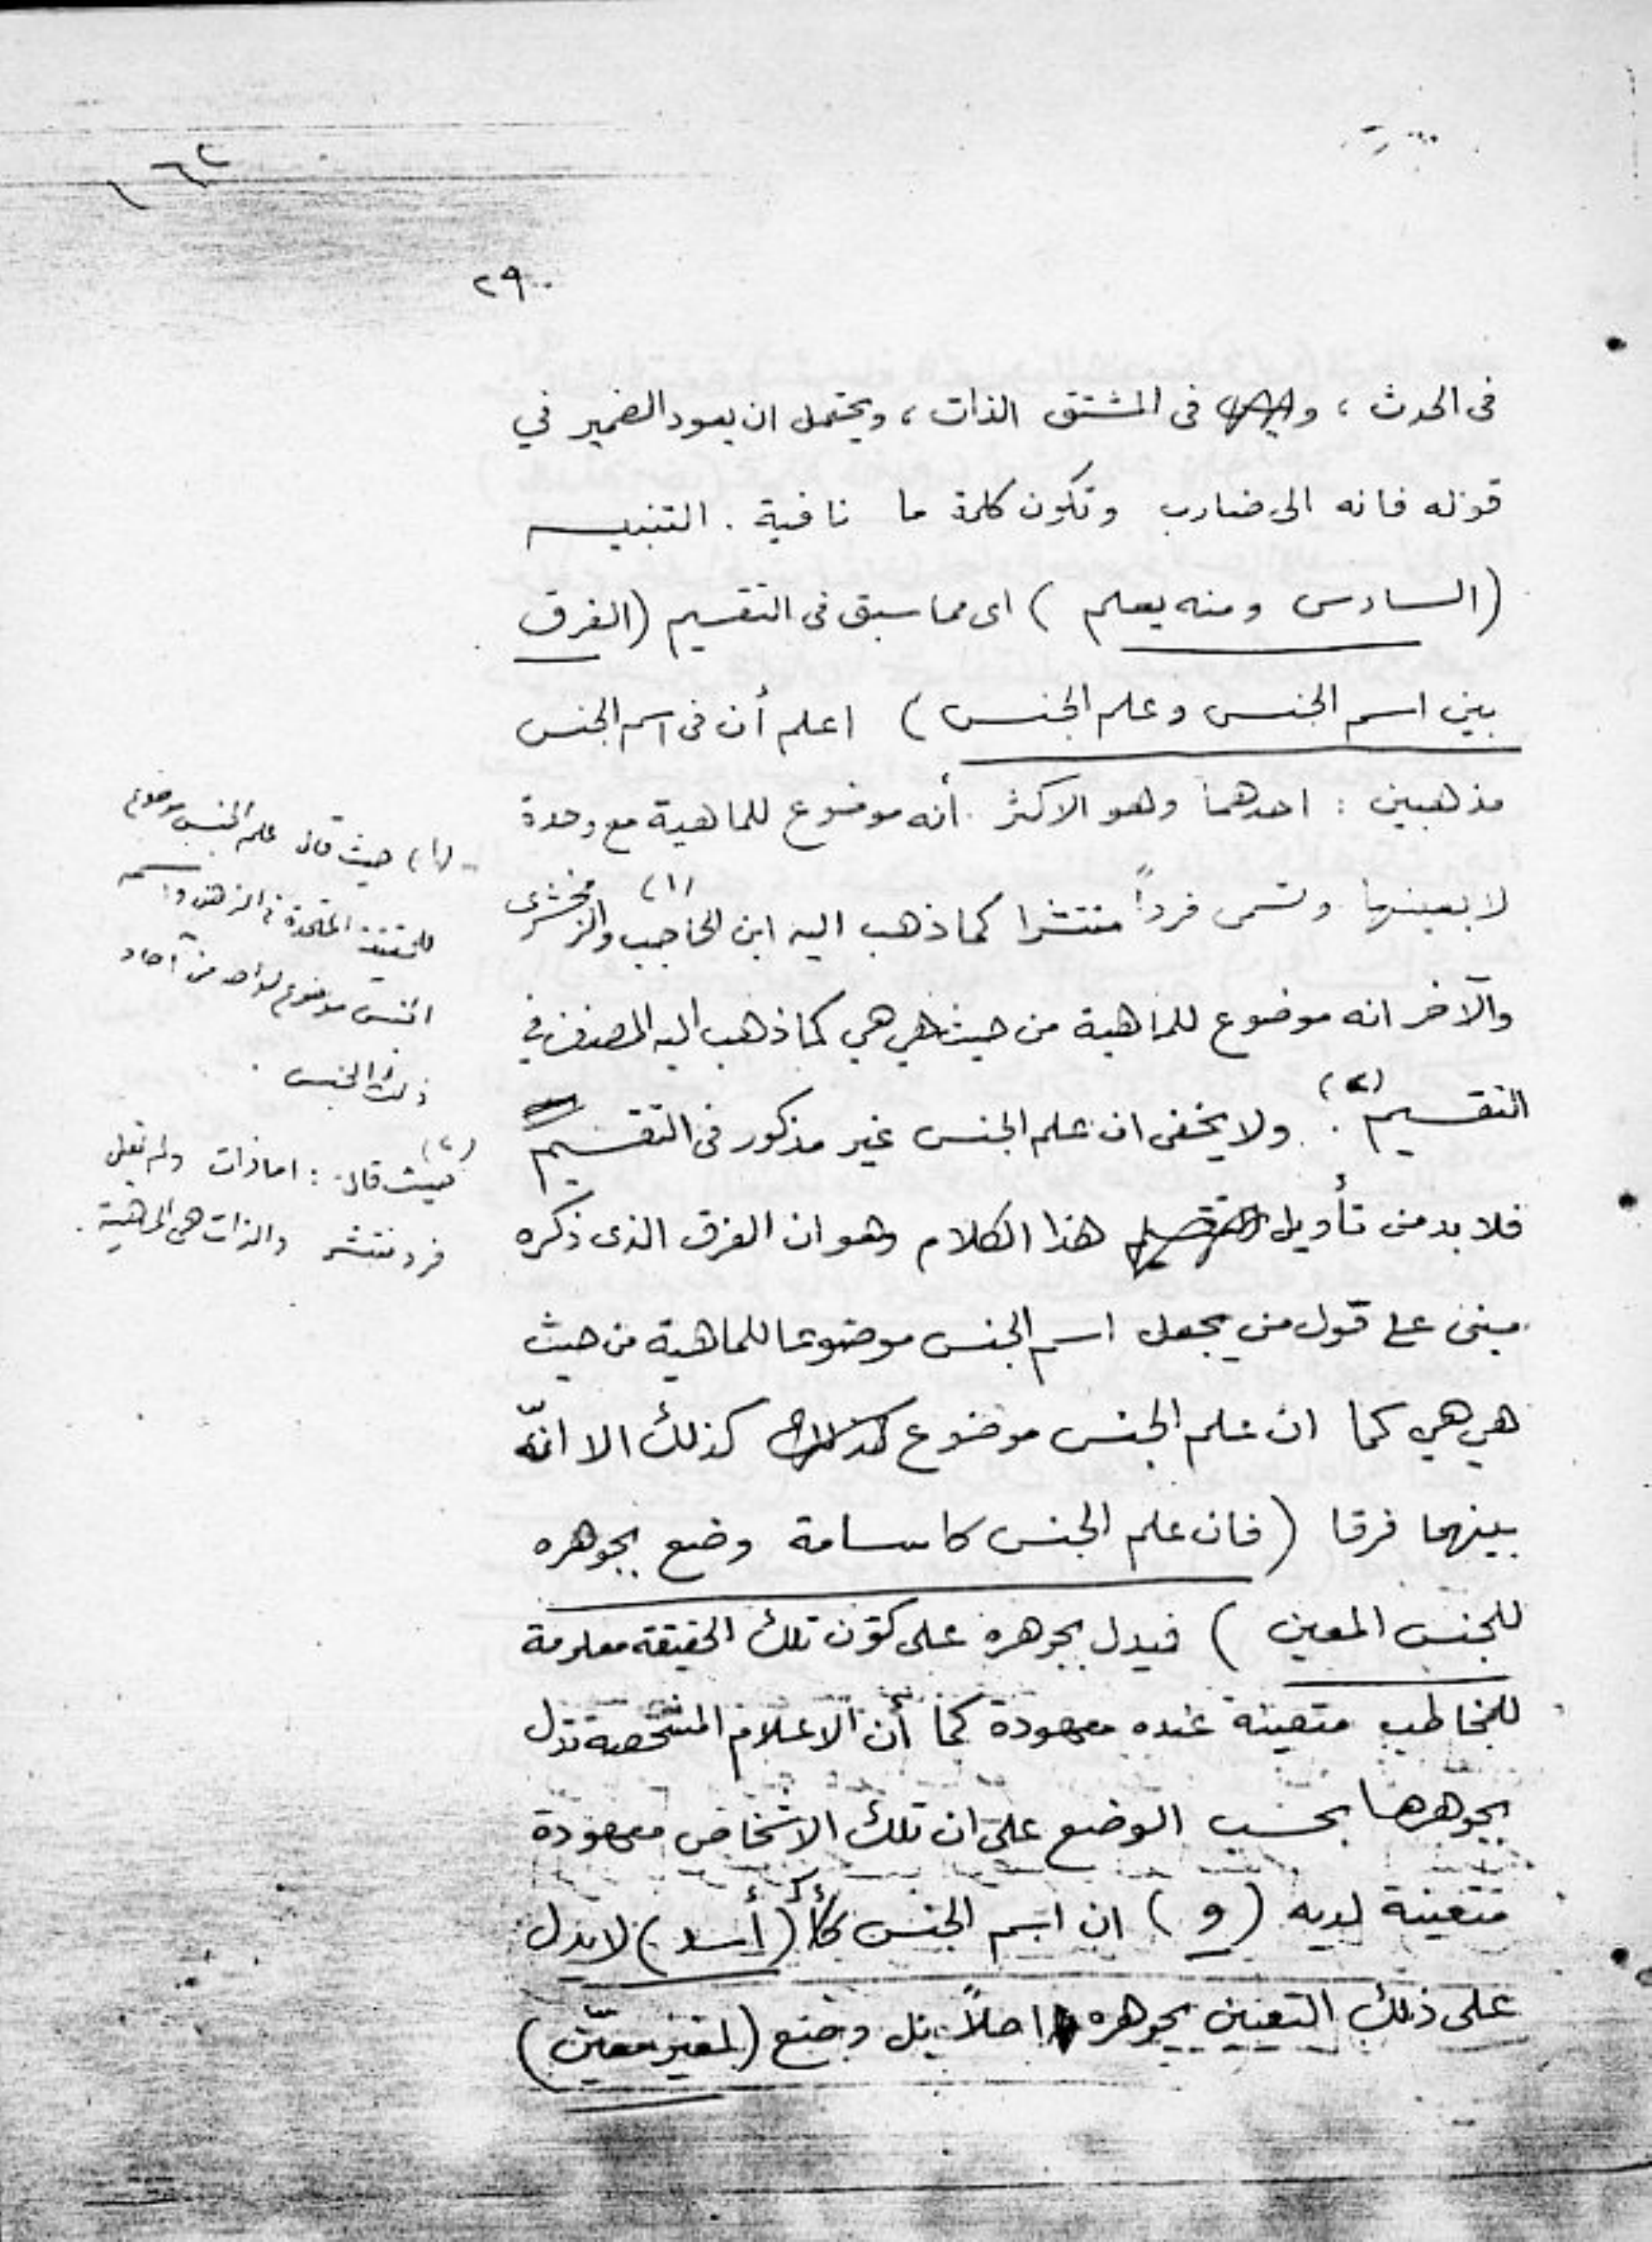 ٢٩
فى الحدث ، و فى المشتق الذات ، ويحتمل ان يعود الضمير في
قوله فانه الى ضارب وتكون كلمة ما نافية . التنبيه
(السادس ومنه يعلم) اى مما سبق فى التقسيم (الفرق
بين اسم الجنس وعلم الجنس) اعلم أن فى اسم الجنس
مذهبين : احدهما وهو الاكثر أنه موضوع للماهية مع وحدة
لا بعينها وتسمى فرداً منتشرا كما ذهب اليه ابن الحاجب والزمخشرى (١)
والآخر انه موضوع للماهية من حيث هي هي كما ذهب اليه المصنف في
التقسيم (٢) . ولا يخفى ان علم الجنس غير مذكور فى التقسيم
فلا بد من تأويل هذا الكلام وهو ان الفرق الذى ذكره
مبنى على قول من يجعل اسم الجنس موضوعا للماهية من حيث
هي هي كما ان علم الجنس موضوع كذلك الا انّه
بينهما فرقا (فان علم الجنس كاسامة وضع بجوهره
للجنس المعين) فيدل بجوهره على كون تلك الحقيقة معلومة
للمخاطب متعينة عنده معهودة كما أن الاعلام الشخصية تدل
بجوهرها بحسب الوضع على ان تلك الاشخاص معهودة
متعينة لديه (و) ان اسم الجنس (كأسد) لا يدل
على ذلك التعيين بجوهره اصلاً بل وضع (لغير معيّن)
(١) حيث قال علم الجنس موضوع
للحقيقة المتحدة في الذهن واسم
الجنس موضوع لواحد من آحاد
ذلك الجنس .
(٢) حيث قال : اما ذات ولم يقل
فرد منتشر والذات هى الماهية .